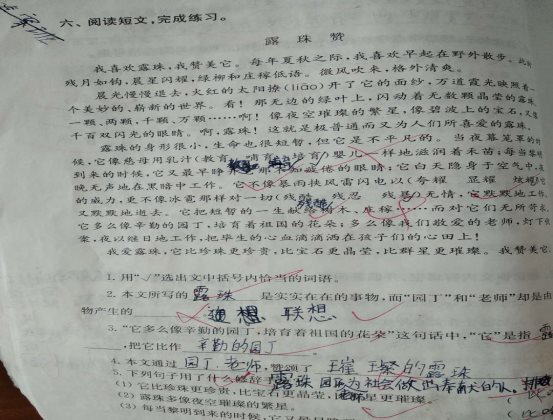 六、阅读短文,完成练习。
露珠赞
我喜欢露珠,我赞美它。每年夏秋之际,我喜欢早起在野外散步。此时
残月如钩,晨星闪耀,绿柳和庄稼低语。微风吹来,格外清爽。
晨光慢慢退去,火红的太阳撩(liāo)开了它的面纱,万道霞光映照着一
个美妙的、崭新的世界。看!那无边的绿叶上,闪动着无数颗晶莹的露珠,
一颗,两颗,千颗、万颗……啊!像夜空璀璨的繁星,像碧波上的宝石,又像
千百双闪光的眼睛。啊,露珠!这就是极普通而又为人们所喜爱的露珠。
露珠的身形很小,生命也很短暂,但它是不平凡的。当夜幕笼罩的时
候,它像慈母用乳汁(教育 哺育 培育)婴儿一样地滋润着禾苗;每当黎明
到来的时候,它又最早睁 那不知疲倦的眼睛;它白天隐身于空气中,夜
晚无声地在黑暗中工作。它不像暴雨挟风雷闪电以(夸耀 显耀 炫耀)它
的威力,更不像冰雹那样对一切(残酷 残忍 残暴)无情,它默默地工作,
又默默地逝去。它把短暂的一生献给树木、庄稼……而对它们无所苛求。
它多么像辛勤的园丁,培育着祖国的花朵;多么像我们敬爱的老师,灯下伏
案,夜以继日地工作,把毕生的心血滴滴洒在孩子们的心田上!
我爱露珠,它比珍珠更珍贵,比宝石更晶莹,比群星更璀璨。我赞美它
1.用“√”选出文中括号内恰当的词语。
2.本文所写的 露珠 是实实在在的事物,而“园丁”和“老师”却是由
物产生的 联想
3.“它多么像辛勤的园丁,培育着祖国的花朵”这句话中,“它”是指 露
,把它比作 辛勤的园丁
4.本文通过 园丁、老师,赞颂了 璀璨的露珠
5.下列句子用了什么修辞手
(1)它比珍珠更珍贵,比宝石更晶莹,比群星更璀璨。
(2)露珠多像夜空璀璨的繁星。
(3)每当黎明到来的时候,它又最早睁